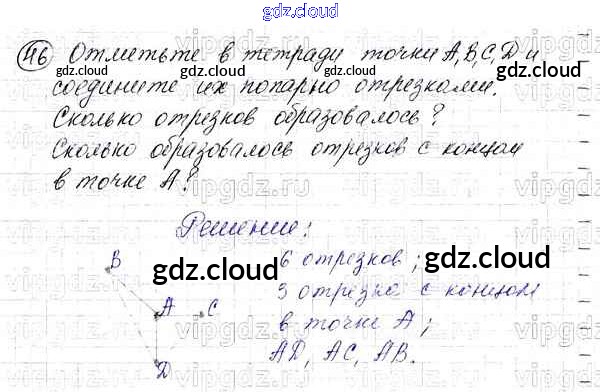 gdz.cloud
46 Отметьте в тетради точки A, B, C, D и
соедините их попарно отрезками.
Сколько отрезков образовалось?
Сколько образовалось отрезков с концом
в точке A?
Решение:
B
6 отрезков;
A
C
3 отрезка с концом
в точке A;
D
AD, AC, AB.
gdz.cloud
gdz.cloud
gdz.cloud
gdz.cloud
gdz.cloud
gdz.cloud
vipgdz.ru